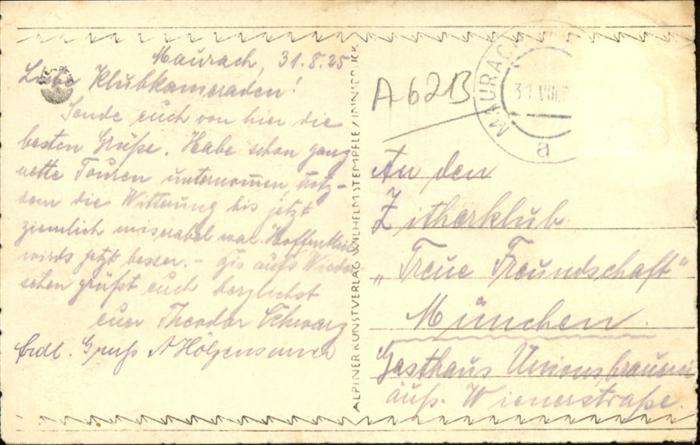 Maurach, 31.8.25
Liebe Klubkameraden!
Sende euch von hier die
besten Grüße. Habe schon ganz
nette Touren unternomen, trotz-
dem die Witterung bis jetzt
ziemlich miserabel war. Hoffentlich
wirds jetzt besser. - Bis aufs Wieder
sehen grüßt euch herzlichst
euer Theodor Schwarz
Gruß
ALPINER KUNSTVERLAG WILHELM STEMPFLE / INNSBRUCK
A621B
MAURACH
a
An den
Zitherklub
„Treue Freundschaft"
München
Gasthaus Unionsbrauerei
äuß. Wienerstraße.